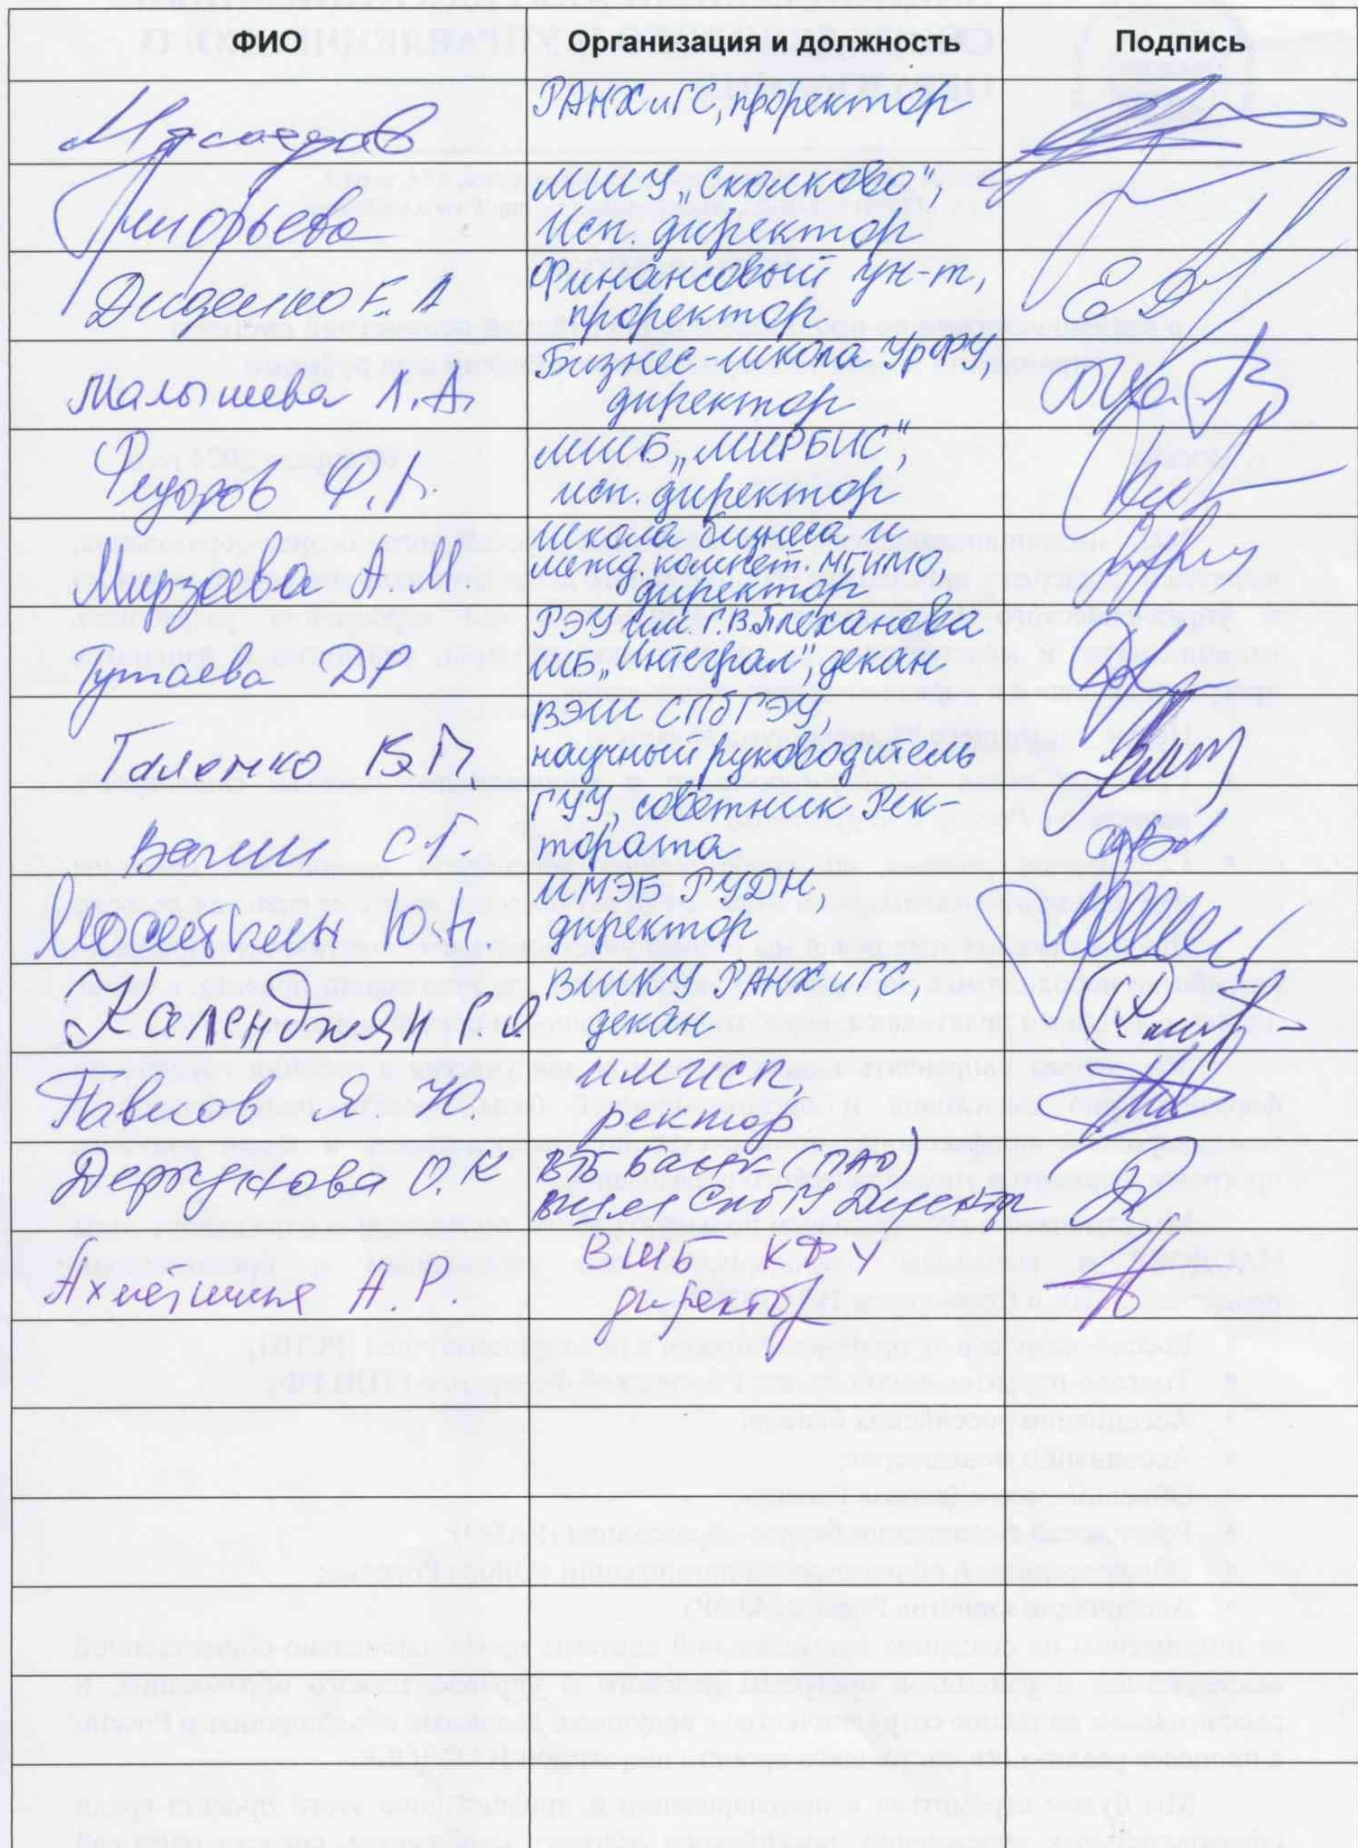 ФИО Организация и должность Подпись
Мясоедов РАНХиГС, проректор
Григорьева МШУ „Сколково“,
исп. директор
Диденко Е. А Финансовый ун-т,
проректор
Малышева Л.А. Бизнес-школа УрФУ,
директор
Федоров Ф.Г. МШБ „МИРБИС“,
исп. директор
Мирзоева А.М Школа бизнеса и
межд. компет. МГИМО,
директор
Тутаева ДР РЭУ им. Г.В.Плеханова
ШБ „Интеграл“, декан
Галенко ВП ВЭШ СПбГЭУ,
научный руководитель
Вагин С.Г. ГУУ, советник Рек-
тората
Мосейкин Ю.Н. ИМЭБ РУДН,
директор
Календжян С.О. ВШКУ РАНХиГС,
декан
Павсов Я. Ю. ИМИСП,
ректор
Дергунова О.К ВТБ Банк (ПАО)
ВШМ СПбГУ Директор
Ахметшина А.Р. ВШБ КФУ
директор